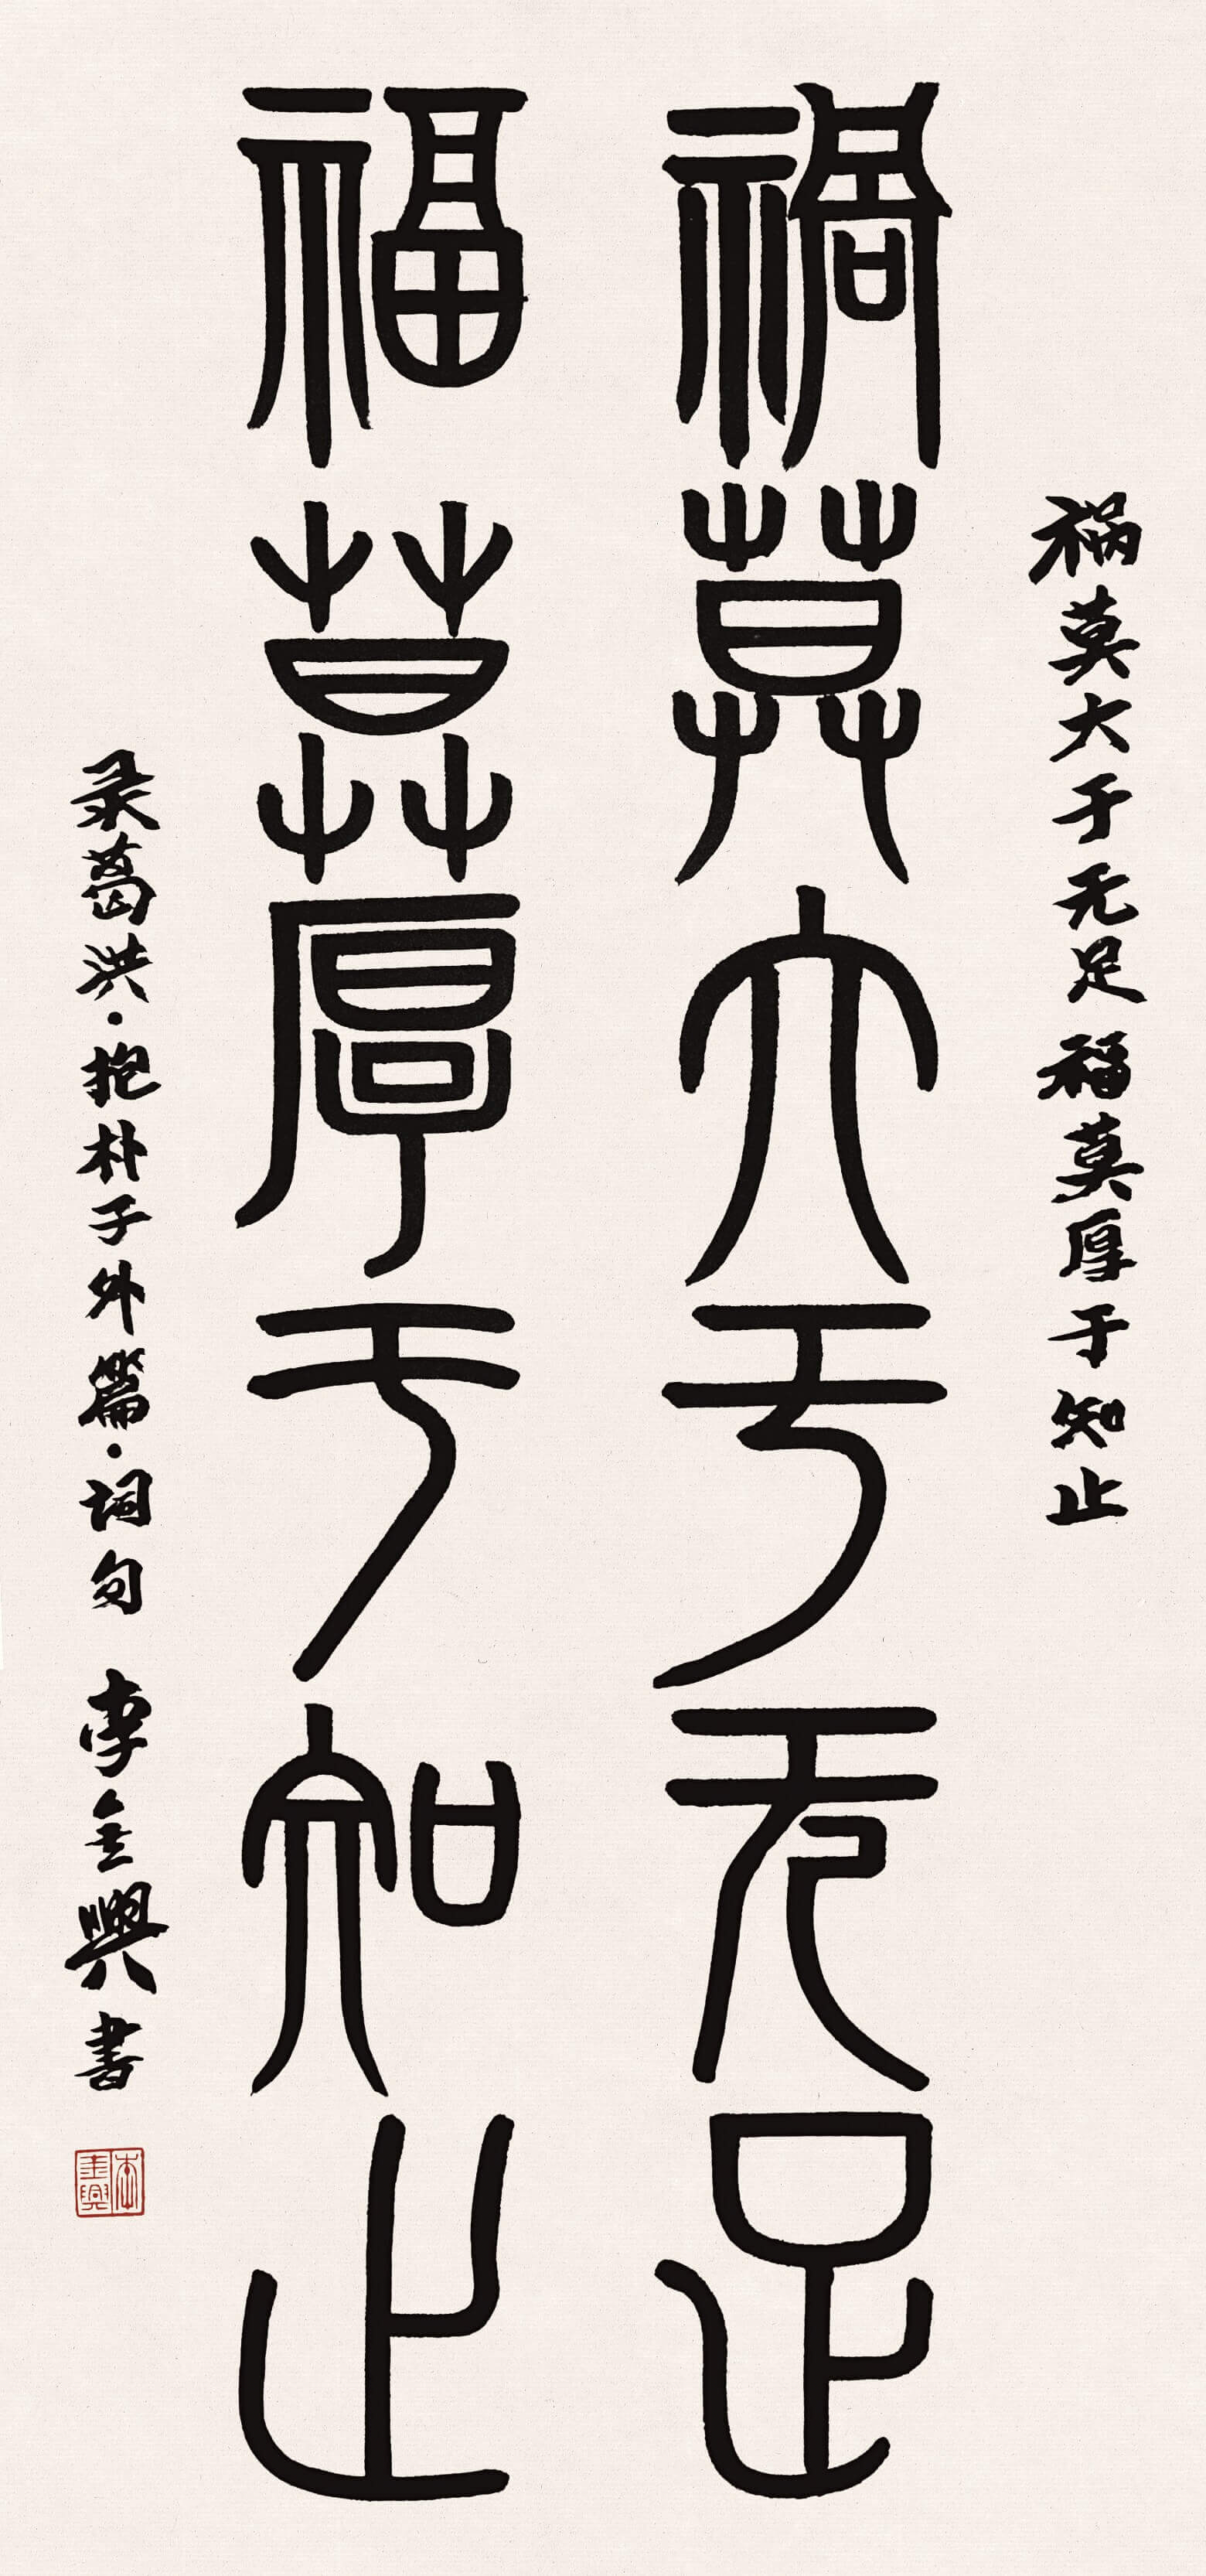 祸莫大于无足福莫厚于知止
禍莫大于无足
福莫厚于知止
录葛洪·抱朴子外篇·词句 李金興书
李金興